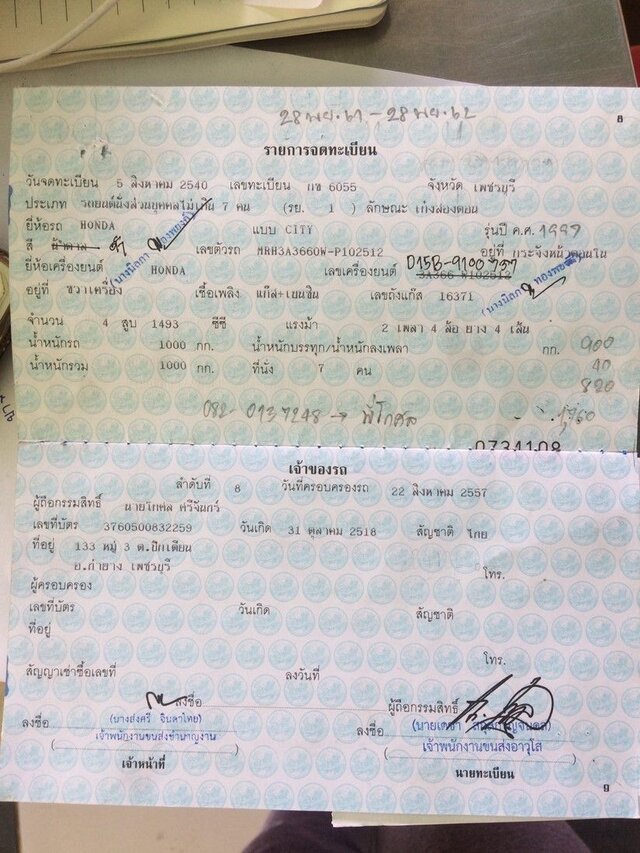 28 พ.ย. 61 - 28 พ.ย. 62
8
รายการจดทะเบียน
วันจดทะเบียน 5 สิงหาคม 2540 เลขทะเบียน กข 6055 จังหวัด เพชรบุรี
ประเภท รถยนต์นั่งส่วนบุคคลไม่เกิน 7 คน (รย. 1 ) ลักษณะ เก๋งสองตอน
ยี่ห้อรถ HONDA แบบ CITY รุ่นปี ค.ศ. 1997
สี ดำ เลขตัวรถ MRH3A3660W-P102512 อยู่ที่ กระจังหน้าตอนใน
ยี่ห้อเครื่องยนต์ HONDA เลขเครื่องยนต์ D15B-9100737
3A366 W102512
อยู่ที่ ขวาเครื่อง เชื้อเพลิง แก๊ส+เบนซิน เลขถังแก๊ส 16371
จำนวน 4 สูบ 1493 ซีซี แรงม้า 2 เพลา 4 ล้อ ยาง 4 เส้น
น้ำหนักรถ 1000 กก. น้ำหนักบรรทุก/น้ำหนักลงเพลา กก. 900
น้ำหนักรวม 1000 กก. ที่นั่ง 7 คน 40
820
082-0137248 → พี่โกศล 1,760
0734108
เจ้าของรถ
ลำดับที่ 8 วันที่ครอบครองรถ 22 สิงหาคม 2557
ผู้ถือกรรมสิทธิ์ นายโกศล ศรีจันทร์
เลขที่บัตร 3760500832259 วันเกิด 31 ตุลาคม 2518 สัญชาติ ไทย
ที่อยู่ 133 หมู่ 3 ต.ปึกเตียน
อ.ท่ายาง เพชรบุรี โทร.
ผู้ครอบครอง
เลขที่บัตร วันเกิด สัญชาติ
ที่อยู่
โทร.
สัญญาเช่าซื้อเลขที่ ลงวันที่
ลงชื่อ ผู้ถือกรรมสิทธิ์
ลงชื่อ (นางส่งศรี จินดาไทย) ลงชื่อ
เจ้าพนักงานขนส่งชำนาญงาน เจ้าพนักงานขนส่งอาวุโส
เจ้าหน้าที่ นายทะเบียน
9